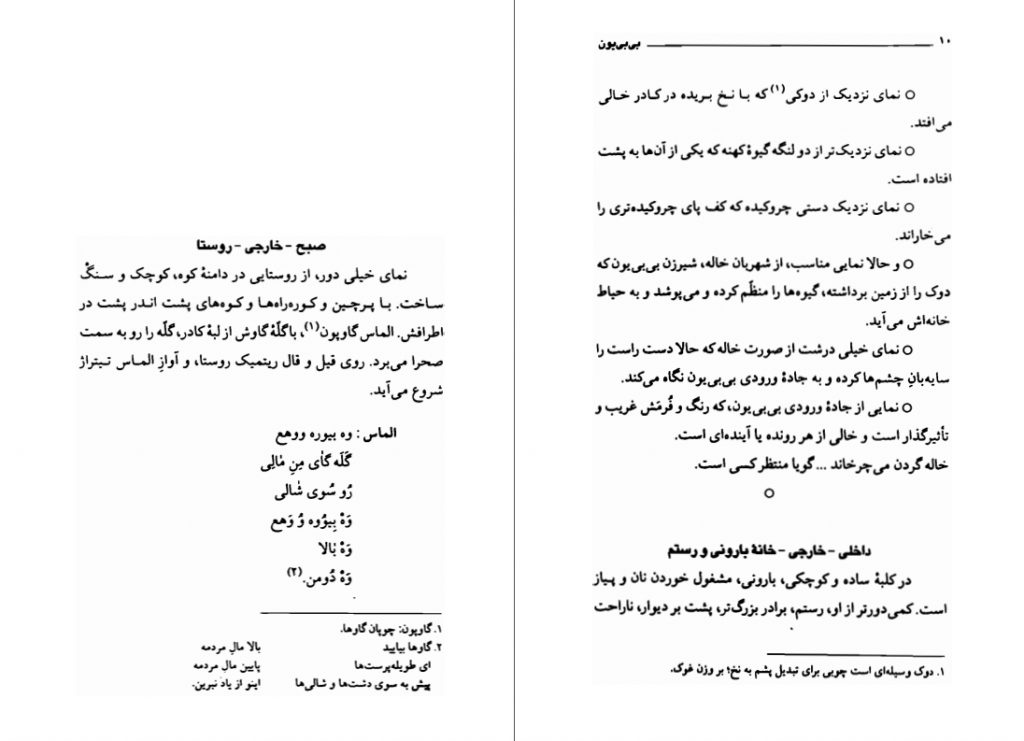 صبح - خارجی - روستا
نمای خیلی دور، از روستایی در دامنهٔ کوه، کوچک و سنگْ
ساخت. با پرچین و کوره‌راه‌ها و کوه‌های پشت اندر پشت در
اطرافش. الماس گاوپون(۱)، با گلّهٔ گاوش از لبهٔ کادر، گلّه را رو به سمت
صحرا می‌برد. روی قیل و قال ریتمیک روستا، و آوازِ الماس تیتراژ
شروع می‌آید.
الماس : وه بیوره ووهع
گَلّه گاْی مِنِ مْالِی
رُو سُوی شْالی
وَهْ بِیوُوه وُ وَهع
وَهْ بْالا
وَهْ دُومن.(۲)
۱. گاوپون: چوپان گاوها.
۲. گاوها بیایید بالا مالِ مردمه
ای طویله‌پرست‌ها پایین مالِ مردمه
پیش به سوی دشت‌ها و شالی‌ها اینو از یاد نبرین.
۱۰ بی‌بی‌یون
○ نمای نزدیک از دوکی(۱) که با نخ بریده در کادر خالی
می‌افتد.
○ نمای نزدیک‌تر از دو لنگه گیوهٔ کهنه که یکی از آن‌ها به پشت
افتاده است.
○ نمای نزدیک دستی چروکیده که کف پای چروکیده‌تری را
می‌خاراند.
○ و حالا نمایی مناسب، از شهربان خاله، شیرزن بی‌بی‌یون که
دوک را از زمین برداشته، گیوه‌ها را منظّم کرده و می‌پوشد و به حیاط
خانه‌اش می‌آید.
○ نمای خیلی درشت از صورت خاله که حالا دست راست را
سایه‌بانِ چشم‌ها کرده و به جادهٔ ورودی بی‌بی‌یون نگاه می‌کند.
○ نمایی از جادهٔ ورودی بی‌بی‌یون، که رنگ و فُرمَش غریب و
تأثیرگذار است و خالی از هر رونده یا آینده‌ای است.
خاله گردن می‌چرخاند ... گویا منتظر کسی است.
○
داخلی - خارجی - خانهٔ بارونی و رستم
در کلبهٔ ساده و کوچکی، بارونی، مشغول خوردن نان و پیاز
است. کمی‌دورتر از او، رستم، برادر بزرگ‌تر، پشت بر دیوار، ناراحت
۱. دوک وسیله‌ای است چوبی برای تبدیل پشم به نخ؛ بر وزن غوک.